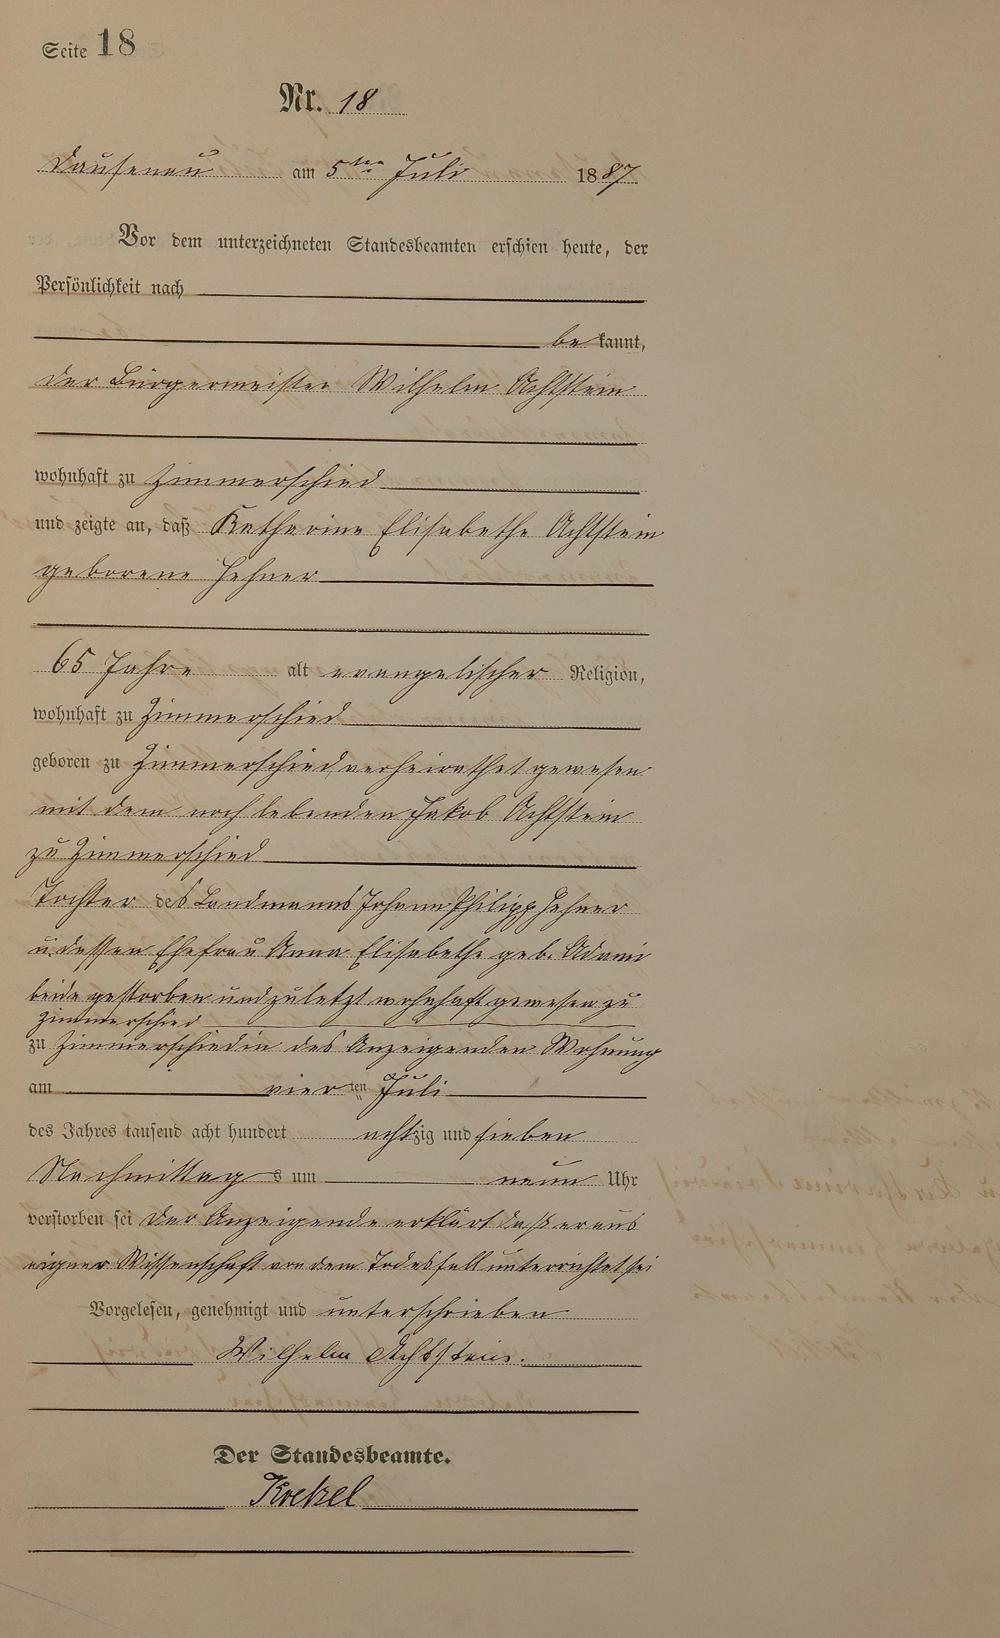 Seite 18
Nr. 18
Dausenau am 5ten Juli 1887
Vor dem unterzeichneten Standesbeamten erschien heute, der
Persönlichkeit nach
be kannt,
der Bürgermeister Wilhelm Achtstein
wohnhaft zu Zimmerschied
und zeigte an, daß Katharine Elisabethe Achtstein
geborene Hehner
65 Jahre alt evangelischer Religion,
wohnhaft zu Zimmerschied
geboren zu Zimmerschied verheirathet gewesen
mit dem noch lebenden Jakob Achtstein
zu Zimmerschied
Tochter des Landmanns Johann Philipp Hehner
u. dessen Ehefrau Anna Elisabethe geb. Adami
beide gestorben und zuletzt wohnhaft gewesen zu
Zimmerschied
zu Zimmerschied in des Anzeigenden Wohnung
am vier ten Juli
des Jahres tausend acht hundert achtzig und sieben
Nachmittag s um neun Uhr
verstorben sei der Anzeigende erklärt daß er aus
eigner Wissenschaft von dem Todesfall unterrichtet sei
Vorgelesen, genehmigt und unterschrieben
Wilhelm Achtstein.
Der Standesbeamte.